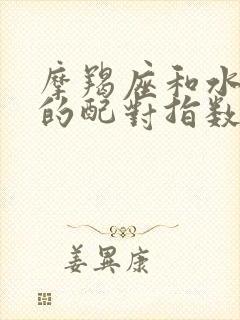 摩羯座和水
的配對指数
姜異康